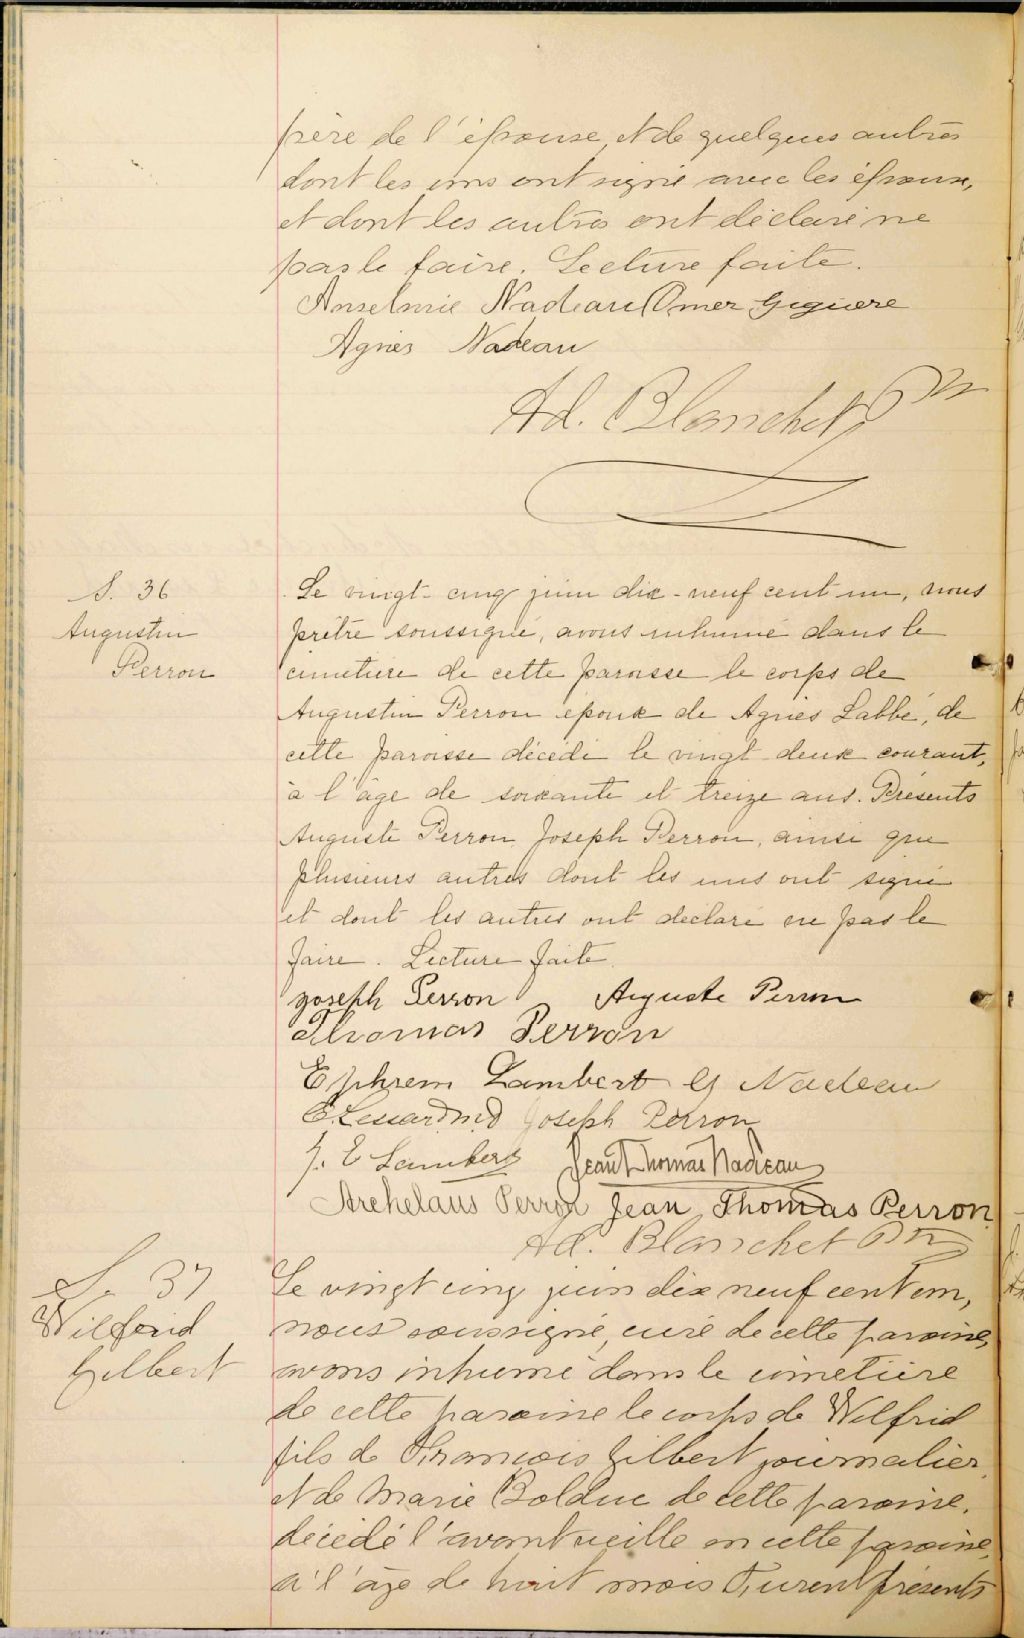 père de l'épouse, et de quelques autres
dont les uns ont signé avec les époux,
et dont les autres ont déclaré ne
pas le faire. Lecture faite.
Anselmie Nadeau Omer Giguere
Agnes Nadeau
Ad. Blanchet Ptre
S. 36
Augustin
Perron
Le vingt-cinq juin dix-neuf cent un, nous
prêtre soussigné, avons inhumé dans le
cimetière de cette paroisse le corps de
Augustin Perron époux de Agnès Labbé, de
cette paroisse décédé le vingt-deux courant,
à l'âge de soixante et treize ans. Présents
Auguste Perron, Joseph Perron, ainsi que
plusieurs autres dont les uns ont signé
et dont les autres ont déclaré ne pas le
faire. Lecture faite.
Joseph Perron Auguste Perron
Thomas Perron
Ephrem Lambert G Nadeau
E. Lessard MD Joseph Perron
J. E Lambert Jean Thomas Nadeau
Archelaus Perron Jean Thomas Perron
Ad. Blanchet Ptre
S. 37
Wilfrid
Gilbert
Le vingt cinq juin dix neuf cent un,
nous soussigné, curé de cette paroisse,
avons inhumé dans le cimetière
de cette paroisse le corps de Wilfrid
fils de François Gilbert journalier,
et de Marie Bolduc de cette paroisse,
décédé l'avant veille en cette paroisse,
à l'âge de huit mois Furent présents